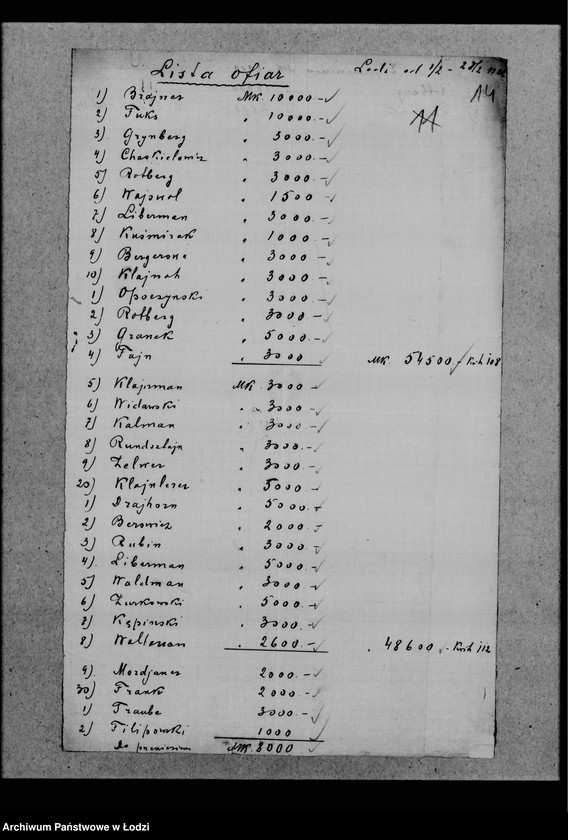 Lista ofiar Łodzi od 1/2 - 28/2
14
11
1) Brajner Mk. 10000 -
2) Fuks " 10000 -
3) Grynberg " 3000 -
4) Chaskielowicz " 3000 -
5) Rotberg " 3000 -
6) Wajsrol " 1500 -
7) Liberman " 3000 -
8) Kuśmirak " 1000 -
9) Bergerson " 3000 -
10) Klajnah " 3000 -
1) Opoczynski " 3000 -
2) Rotberg " 3000 -
3) Granek " 5000 -
4) Fajn " 3000 Mk. 54500 - Kwit 108
5) Klajman Mk. 3000 -
6) Widawski " 3000 -
7) Kalman " 3000 -
8) Rundsztajn " 3000 -
9) Zelwer " 3000 -
20) Klajnlerer " 5000 -
1) Drajhorn " 5000 -
2) Berowicz " 2000 -
3) Rubin " 3000 -
4) Liberman " 5000 -
5) Waldman " 3000 -
6) Żurkowski " 5000 -
7) Kępinski " 3000 -
8) Walterman " 2600 - " 48600 - Kwit 112
9) Mordjaner 2000 -
30) Frank 2000 -
1) Traube 3000 -
2) Filipowski 1000
Do przeniesienia Mk 8000
Archiwum Państwowe w Łodzi